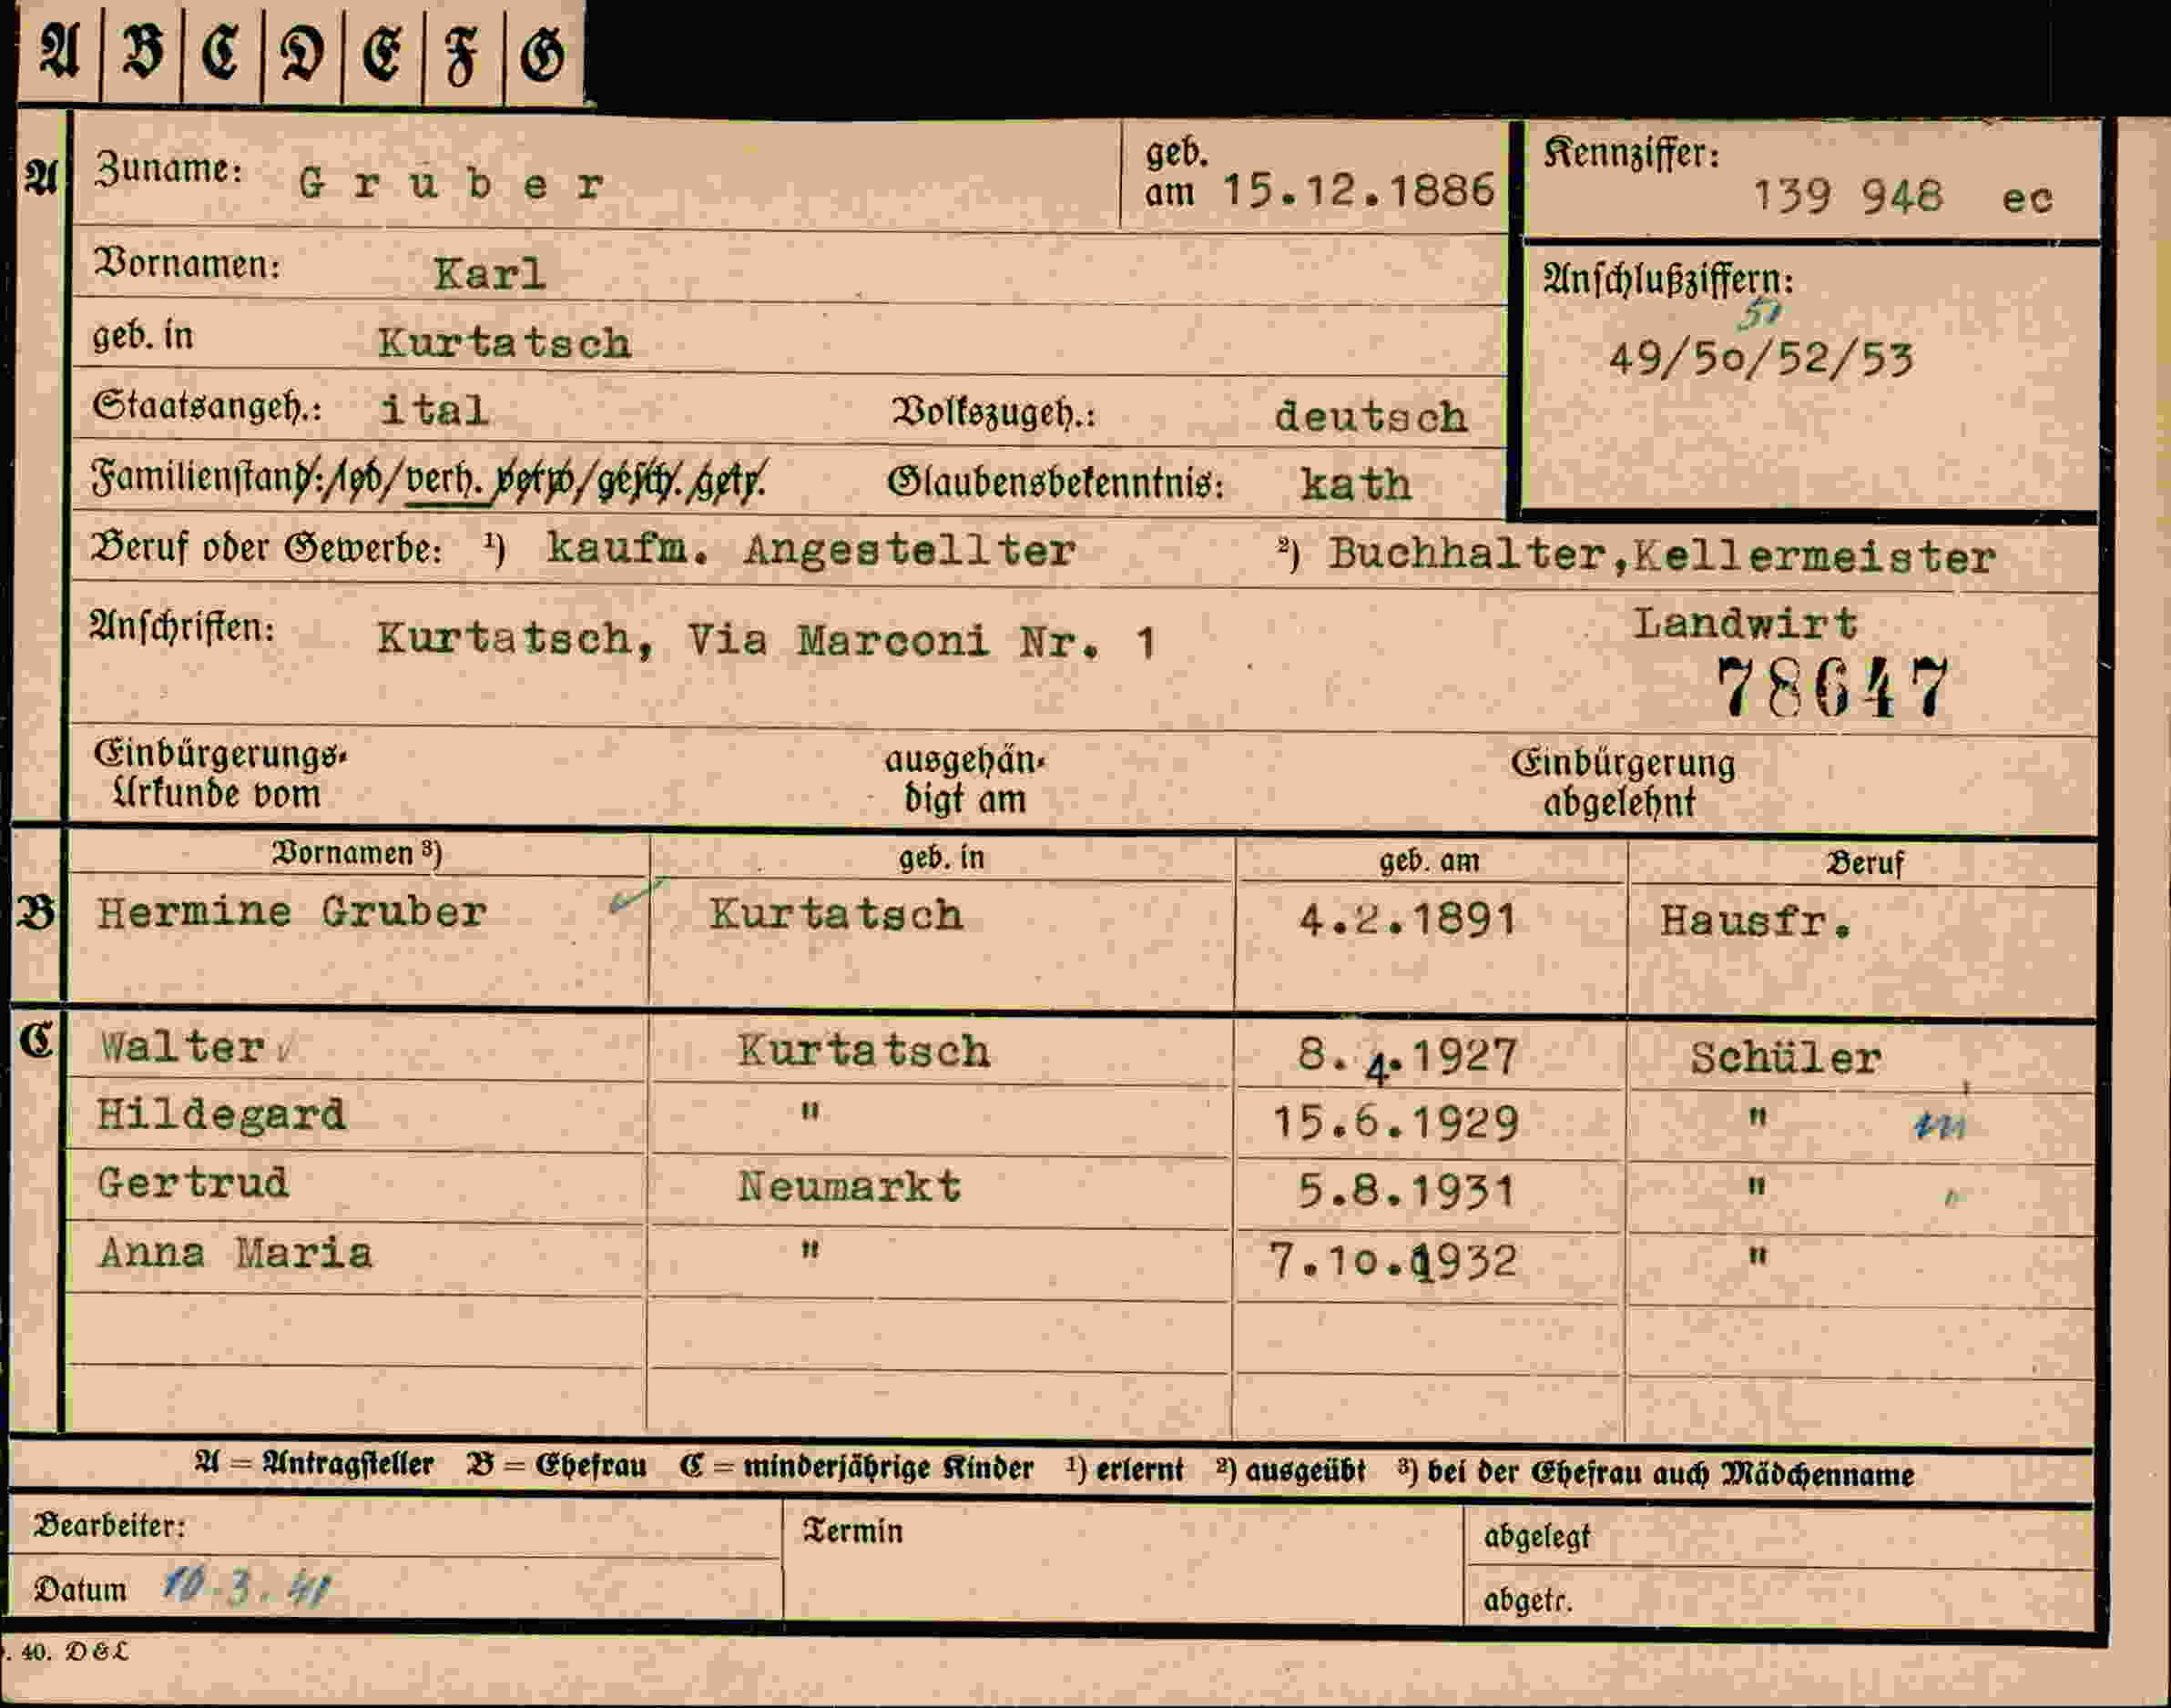 A B C D E F G
A Zuname: Gruber geb. am 15.12.1886 Kennziffer: 139 948 ec
Vornamen: Karl
Anschlußziffern:
51
49/50/52/53
geb. in Kurtatsch
Staatsangeh.: ital Volkszugeh.: deutsch
Familienstand: led/verh. verw/gesch. getr. Glaubensbekenntnis: kath
Beruf oder Gewerbe: ¹) kaufm. Angestellter ²) Buchhalter,Kellermeister
Landwirt
Anschriften: Kurtatsch, Via Marconi Nr. 1
78647
Einbürgerungs-Urkunde vom ausgehän-digt am Einbürgerung abgelehnt
Vornamen ³) geb. in geb. am Beruf
B Hermine Gruber Kurtatsch 4.2.1891 Hausfr.
C Walter Kurtatsch 8.4.1927 Schüler
Hildegard " 15.6.1929 "
Gertrud Neumarkt 5.8.1931 "
Anna Maria " 7.10.1932 "
A = Antragsteller B = Ehefrau C = minderjährige Kinder ¹) erlernt ²) ausgeübt ³) bei der Ehefrau auch Mädchenname
Bearbeiter: Termin abgelegt
Datum 10.3.41 abgetr.
. 40. D&L